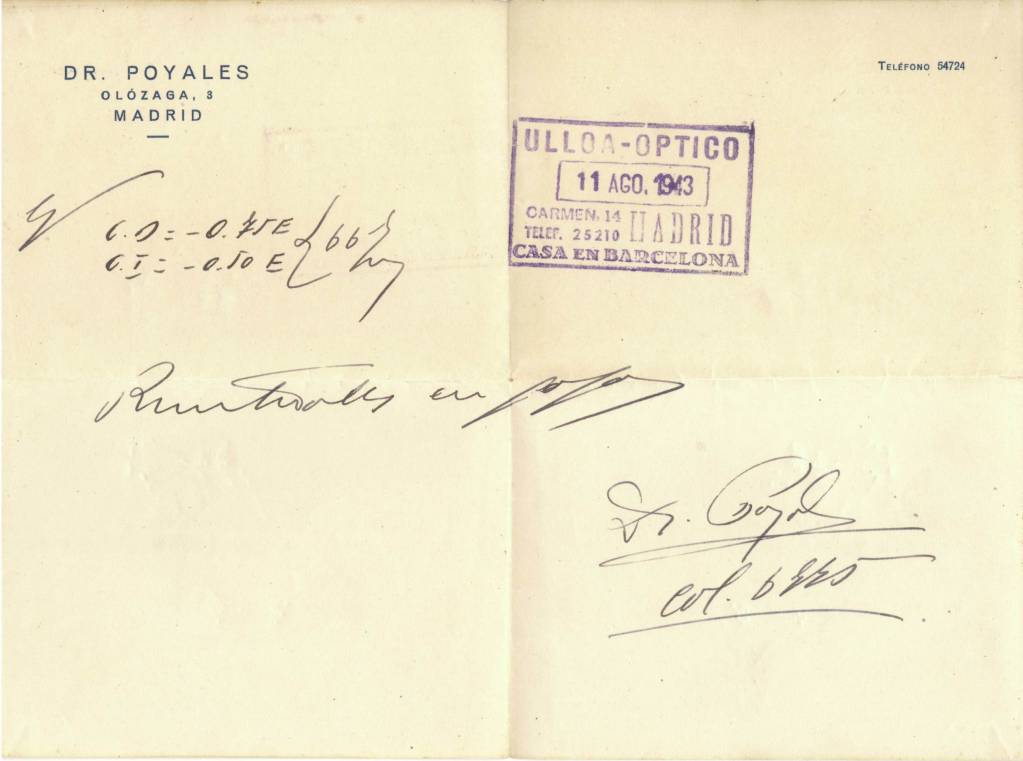 DR. POYALES
OLÓZAGA, 3
MADRID
TELÉFONO 54724
ULLOA-OPTICO
11 AGO. 1943
CARMEN, 14 MADRID
TELEF. 25210
CASA EN BARCELONA
O.D = -0.75E
O.I = -0.50 E
66
en
Dr. Poyales
Col.